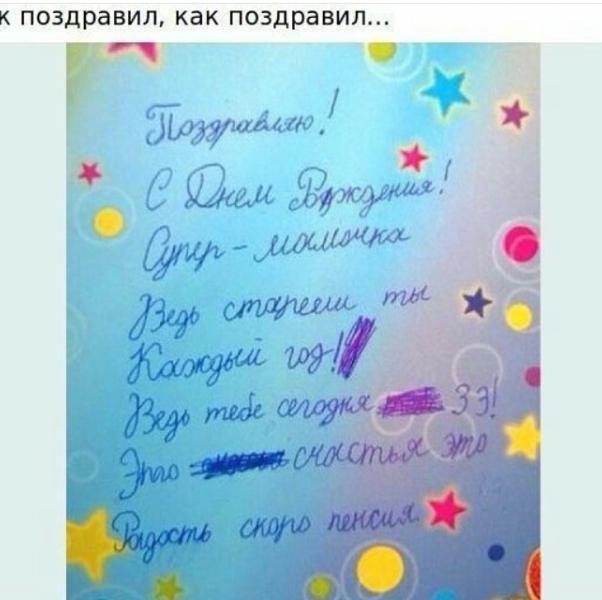 к поздравил, как поздравил...
Поздравляю!
С Днем Рождения!
Супер-мамочка
Ведь стареешь ты
Каждый год!
Ведь тебе сегодня 33!
Это счастья это
Радость скоро пенсия.